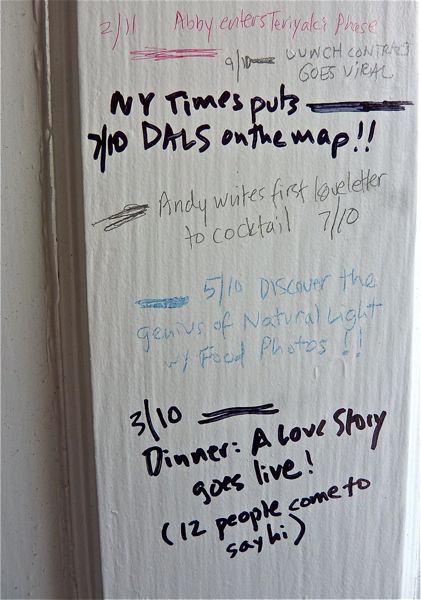 2/11 Abby enters Teriyaki Phase
9/10 LUNCH CONTRACT
GOES VIRAL
NY Times puts
7/10 DALS on the map!!
Andy writes first loveletter
to cocktail 7/10
5/10 DISCOVER the
genius of Natural Light
w/ Food Photos!!
3/10
Dinner: A Love Story
goes live!
(12 people come to
say hi)